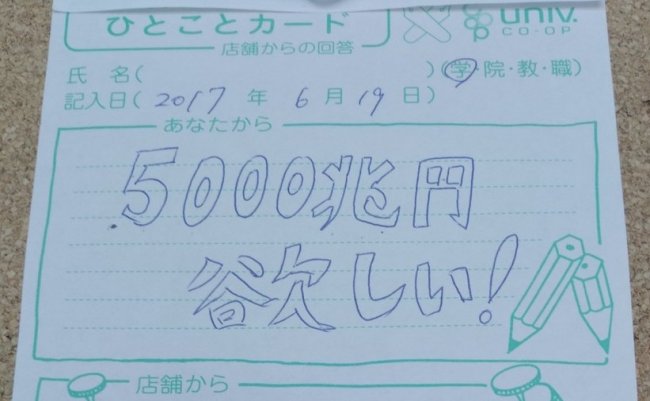 ひとことカード
univ.
CO-OP
店舗からの回答
氏 名( )(学・院・教・職)
記入日( 2017 年 6 月 19 日)
あなたから
5000兆円
欲しい!
店舗から